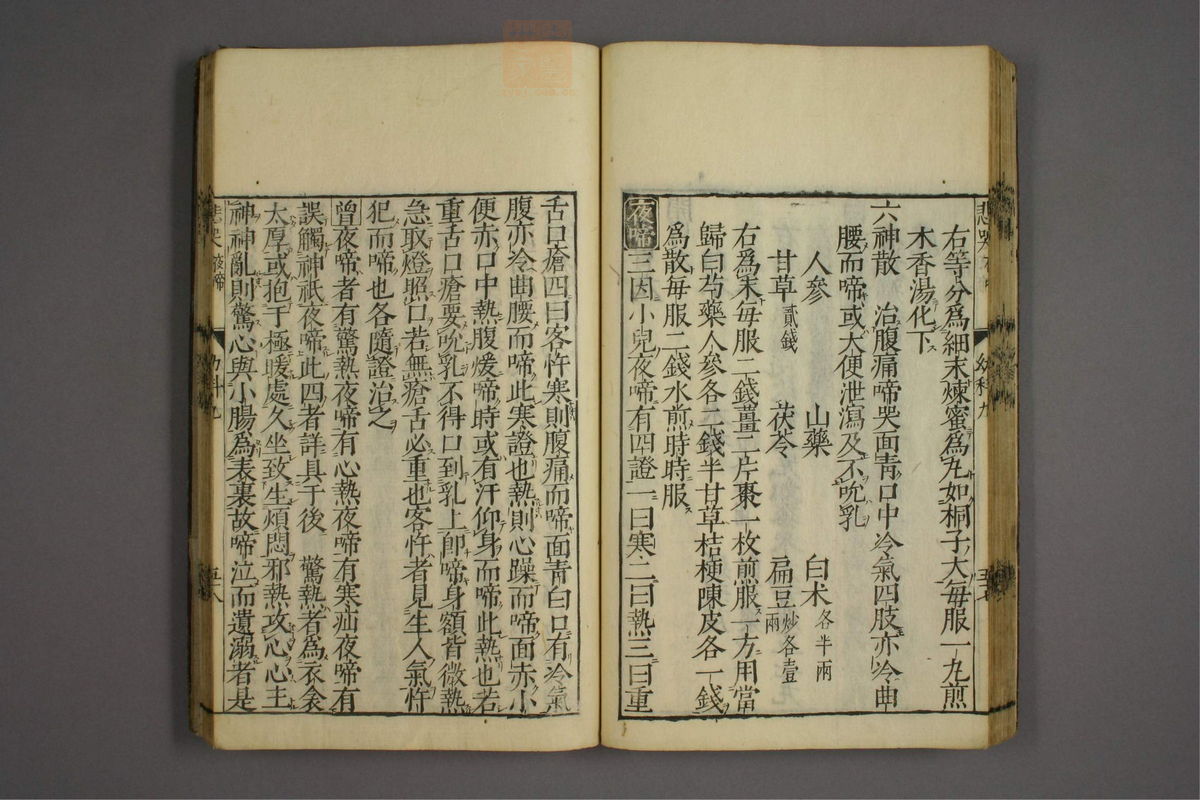 右等分爲細末煉蜜爲丸如桐子大毎服一丸煎
木香湯化下
六神散 治腹痛啼哭面靑口中冷氣四肢亦冷曲
腰而啼或大便泄瀉及不吮乳
人參 山藥 白朮各半兩
甘草貳錢 茯苓 扁豆炒各壹兩
右爲末毎服二錢薑二片棗一枚煎服一方用當
歸白芍藥人參各二錢半甘草桔梗陳皮各一錢
爲散毎服二錢水煎時時服
夜啼三因小兒夜啼有四證一曰寒二曰熱三曰重
舌口瘡四曰客忤寒則腹痛而啼面靑白口有冷氣
腹亦冷曲腰而啼此寒證也熱則心躁而啼面赤小
便赤口中熱腹煖啼時或有汗仰身而啼此熱也若
重舌口瘡要吮乳不得口到乳上卽啼身額皆微熱
急取燈照口若無瘡舌必重也客忤者見生人氣忤
犯而啼也各隨證治之
曾夜啼者有驚熱夜啼有心熱夜啼有寒疝夜啼有
誤觸神祇夜啼此四者詳具于後 驚熱者爲衣衾
太厚或抱于極暖處久坐致生煩悶邪熱攻心心主
神神亂則驚心與小腸為表裏故啼泣而遺溺者是
悲哭 夜啼 幼科九 五十八